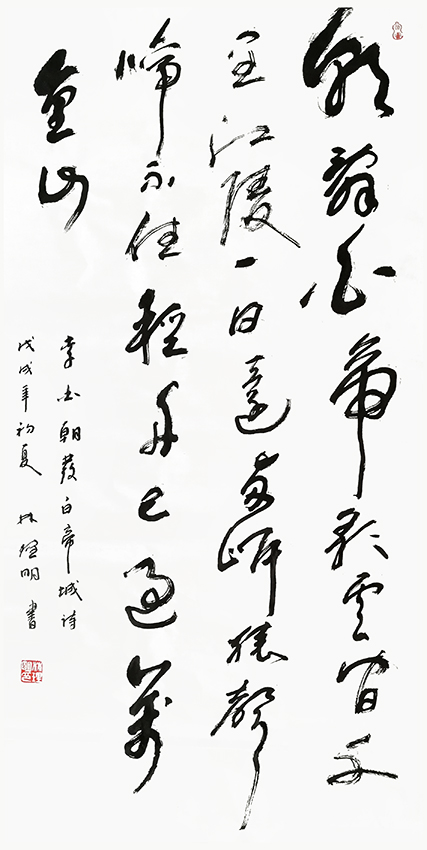 朝辭白帝彩雲間千
里江陵一日還兩岸猿聲
啼不住輕舟已過萬
重山
李白朝發白帝城詩
戊戌年初夏 林明書